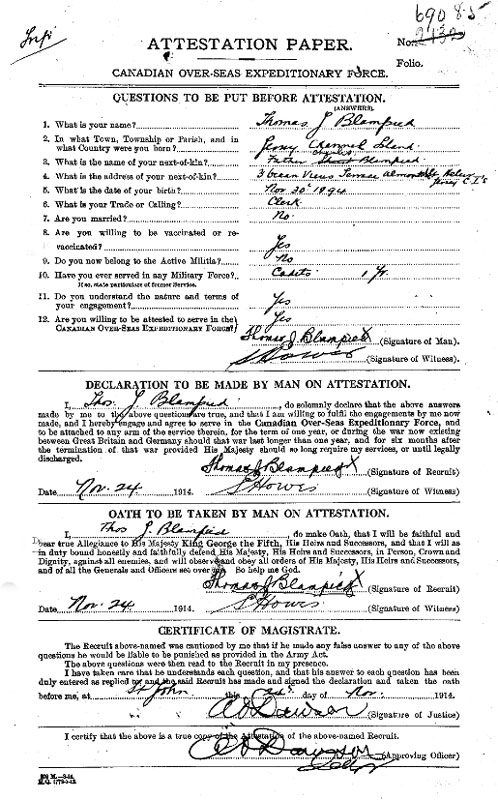 69085
Infy
ATTESTATION PAPER.
No. 2432
Folio.
CANADIAN OVER-SEAS EXPEDITIONARY FORCE.
QUESTIONS TO BE PUT BEFORE ATTESTATION.
(ANSWERS).
1. What is your name? Thomas J Blampied
2. In what Town, Township or Parish, and in
what Country were you born? Jersey Channel Island
3. What is the name of your next-of-kin? Father Blampied
4. What is the address of your next-of-kin? 3 Ocean View Terrace Almorah St Helier Jersey C. I's
5. What is the date of your birth? Nov 20th 1894
6. What is your Trade or Calling? Clerk
7. Are you married? No
8. Are you willing to be vaccinated or re-
vaccinated? Yes
9. Do you now belong to the Active Militia? No
10. Have you ever served in any Military Force? Cadets 1 Yr
If so, state particulars of former Service.
11. Do you understand the nature and terms of
your engagement? Yes
12. Are you willing to be attested to serve in the Yes
CANADIAN OVER-SEAS EXPEDITIONARY FORCE?
Thomas J. Blampied X (Signature of Man).
S Howes (Signature of Witness).
DECLARATION TO BE MADE BY MAN ON ATTESTATION.
I, Thos. J. Blampied, do solemnly declare that the above answers
made by me to the above questions are true, and that I am willing to fulfil the engagements by me now
made, and I hereby engage and agree to serve in the Canadian Over-Seas Expeditionary Force, and
to be attached to any arm of the service therein, for the term of one year, or during the war now existing
between Great Britain and Germany should that war last longer than one year, and for six months after
the termination of that war provided His Majesty should so long require my services, or until legally
discharged.
Thomas J Blampied X (Signature of Recruit)
Date Nov. 24 1914. S Howes (Signature of Witness)
OATH TO BE TAKEN BY MAN ON ATTESTATION.
I, Thos J. Blampied, do make Oath, that I will be faithful and
bear true Allegiance to His Majesty King George the Fifth, His Heirs and Successors, and that I will as
in duty bound honestly and faithfully defend His Majesty, His Heirs and Successors, in Person, Crown and
Dignity, against all enemies, and will observe and obey all orders of His Majesty, His Heirs and Successors,
and of all the Generals and Officers set over me. So help me God.
Thomas J Blampied X (Signature of Recruit)
Date Nov. 24 1914. S Howes (Signature of Witness)
CERTIFICATE OF MAGISTRATE.
The Recruit above-named was cautioned by me that if he made any false answer to any of the above
questions he would be liable to be punished as provided in the Army Act.
The above questions were then read to the Recruit in my presence.
I have taken care that he understands each question, and that his answer to each question has been
duly entered as replied to, and the said Recruit has made and signed the declaration and taken the oath
before me, at St John this 24th day of Nov. 1914.
(Signature of Justice)
I certify that the above is a true copy of the Attestation of the above-named Recruit.
(Approving Officer)